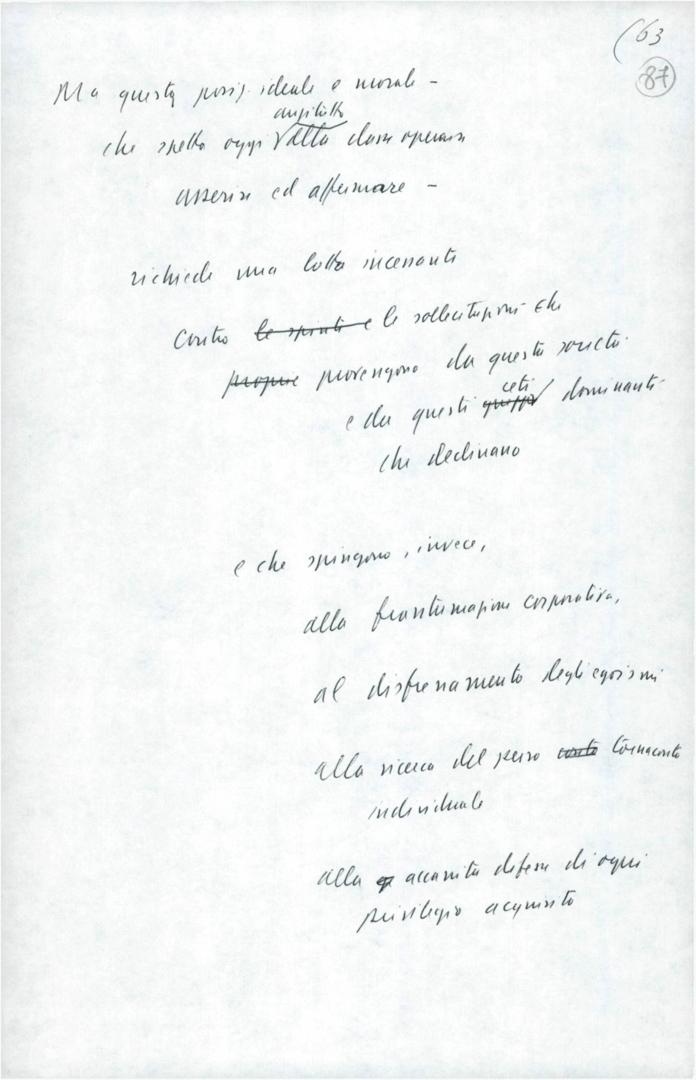 (63
87
Ma questa posiz. ideale e morale –
anzitutto
che spetta oggi alla classe operaia
asserire ed affermare –
richiede una lotta incessante
contro le spinte e le sollecitazioni che
proprie provengono da questa società
ceti
e da questi gruppi dominanti
che declinano
e che spingono, invece,
alla frantumazione corporativa,
al disfrenamento degli egoismi
alla ricerca del perso conto tornaconto
individuale
alla accanita difesa di ogni
privilegio acquisito